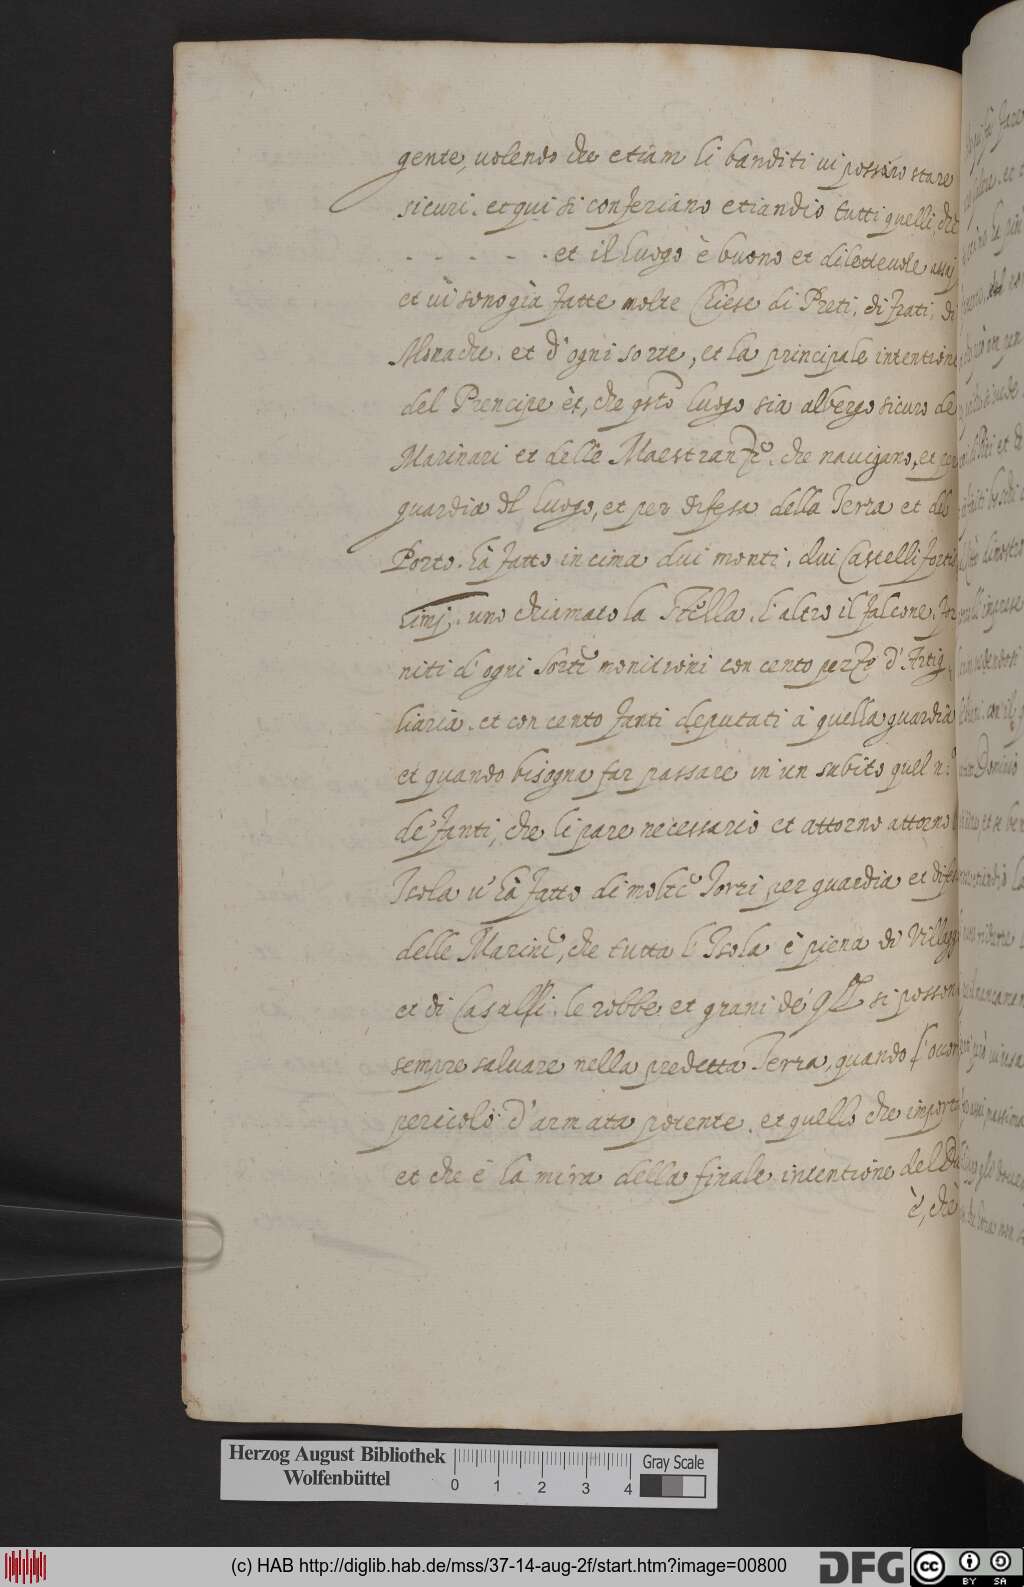 gente, uolendo che etiam li banditi ui possino stare
sicuri. et qui si conferiano etiandio tutti quelli, che
. . . . . . et il luogo è buono et dilettevole assaj
et ui sono già fatte molte Chiese di Preti, di frati, di
Monache. et d'ogni sorte, et la principale intentione
del Prencipe è, che qsto luogo sia albergo sicuro de
Marinari et delle Maestranze. che navigano, et per
guardia dl luogo, et per difesa della Terra et del
Porto. hà fatto in cima dui monti. dui Castelli fortis
simj. uno chiamato la Stella. l'altro il falcone. for
niti d'ogni sorte monitioni con cento pezze d'Artig
liaria. et con cento fanti deputati à quella guardia
et quando bisogna far passare in un subito quel n.º
de' fanti, che li pare necessario et attorno attorno
Isola u' hà fatto di molte Torri per guardia et difesa
delle Marine, che tutta l'Isola è piena di Villaggi
et di Casali. le robbe et grani de' si possono
sempre salvare nella predetta Terra, quando
pericolo d'armata potente. et quello che importa
et che è la mira della finale intentione del
è, che
Herzog August Bibliothek
Wolfenbüttel
0 1 2 3 4
Gray Scale
(c) HAB http://diglib.hab.de/mss/37-14-aug-2f/start.htm?image=00800
DFG
cc BY SA